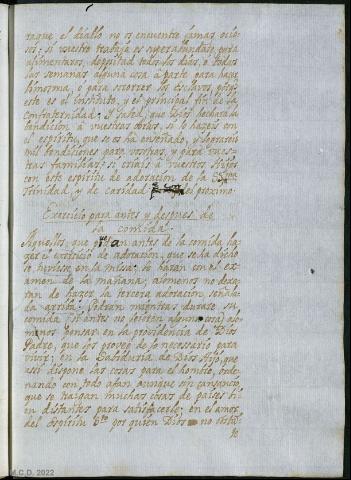 raque el diablo no os encuentre jamas ocio
sos: si vuestro trabajo es superabundante para
alimentaros, depositad todos los dias, o todas
las semanas alguna cosa à parte para hazer
limosna, o para socorrer los esclavos, porq̃
este es el instituto, y el principal fin de la
Confraternidad. Y sabed, que Dios hecharà la
bendicion à vuestras obras, si lo hazeis con
el espiritu, que se os ha enseñado, y lograreis
mil bendiciones para vosotros, y para vues-
tras familias; si criais à vuestros Hijos
con este espiritu de adoracion de la SSma
Trinidad, y de caridad el proximo.
Exercicio para antes y despues de
la comida.
Aquellos, que antes de la comida ha-
zer el exercicio de adoracion, que se ha dicho
en la missa, lo haran con el exa-
men de la mañana; alomenos no dexa-
ran de hazer la tercera adoracion, señala-
da arriba. Podran mientras durare su
comida (si antes no leyeren alguna cosa) alo-
menos pensar en la providencia de Dios
Padre, que los provee de lo necessario para
vivir; en la Sabiduria de Dios Hijo, que
assi dispone las cosas para el hombre, orde-
nando con todo afan, aunque sin cansancio
que se traigan muchas cosas de paises bi-
en distantes para satisfacerle; en el amor
del Espiritu Sto por quien Dios no
M.C.D. 2022